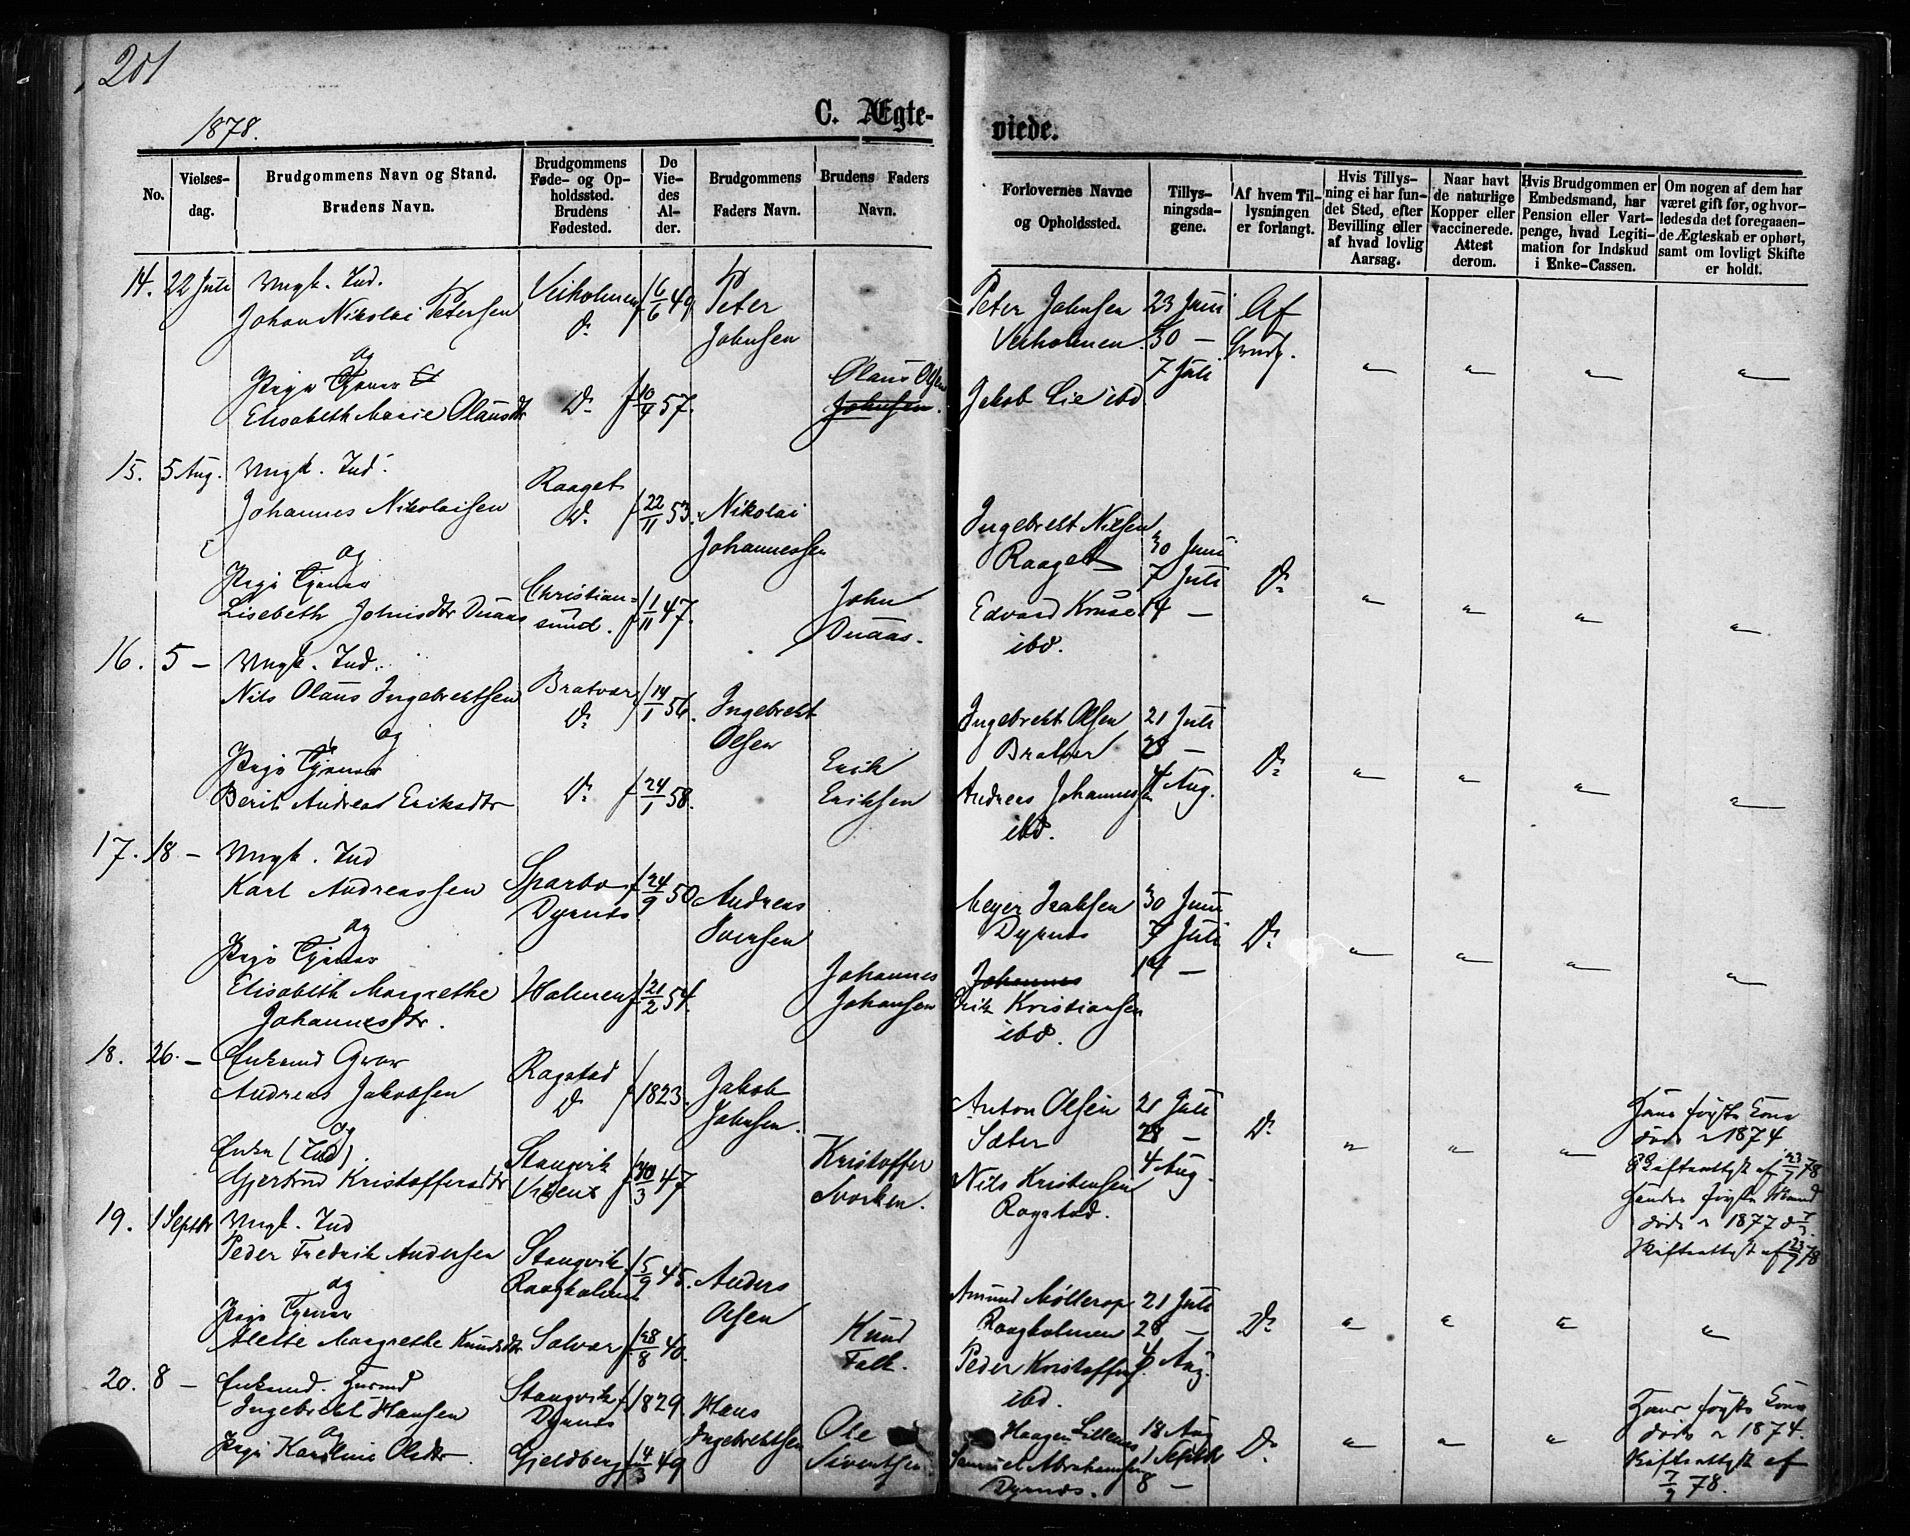 201
1878.
C. Ægte-
viede.
No.
Vielses-
dag.
Brudgommens Navn og Stand.
Brudens Navn.
Brudgommens
Føde- og Op-
holdssted.
Brudens
Fødested.
De
Vie-
des
Al-
der.
Brudgommens
Faders Navn.
Brudens Faders
Navn.
Forlovernes Navne
og Opholdssted.
Tillys-
ningsda-
gene.
Af hvem Til-
lysningen
er forlangt.
Hvis Tillys-
ning ei har fun-
det Sted, efter
Bevilling eller
af hvad lovlig
Aarsag.
Naar havt
de naturlige
Kopper eller
vaccinerede.
Attest
derom.
Hvis Brudgommen er
Embedsmand, har
Pension eller Vart-
penge, hvad Legiti-
mation for Indskud
i Enke-Cassen.
Om nogen af dem har
været gift før, og hvor-
ledes da det foregaaen-
de Ægteskab er ophørt,
samt om lovligt Skifte
er holdt.
14. 22 Juli Ungk. Ind. Veiholmen f 16/6 49 Peter
Johan Nikolai Petersen D. Johnsen
og
Pige Tjener
Elisabeth Marie Olausdtr D. f 10/4 57. Olaus Olsen
Johnsen.
Peter Johnsen 23 Juni Af
Veiholmen 30 — Brudg.
7 Juli
Jakob Lie ibd.
15. 5 Aug. Ungk. Ind.
Johannes Nikolaisen Raaget D. f 22/11 53. Nikolai
Johannessen
og
Pige Tjener Christian- John
Lisebeth Johnsdtr Duaas sund. f 1/11 47. Duaas.
Ingebrekt Nilsen 30 Juni
Raaget 7 Juli D.
Edvard Kruse 14 —
ibd.
16. 5 — Ungk. Ind.
Nils Olaus Ingebrektsen Bratvær D. f 14/1 56. Ingebrekt
Olsen
og
Pige Tjener Erik
Berit Andrea Eriksdtr D. f 24/1 58. Eriksen
Ingebrekt Olsen 21 Juli
Bratvær 28 — D.
Andreas Johannessen 4 Aug.
ibd.
17. 18 — Ungk. Ind
Karl Andreassen Sparbo f 24/9 50 Andreas
Dyrnes Svensen
og
Pige Tjener Johannes
Elisabeth Margrethe Holmen f 21/2 54. Johansen
Johannesdtr.
Meyer 30 Juni
Dyrnes 7 Juli D.
Johannes 14 —
Erik Kristiansen
ibd.
18. 26. — Enkemd Gaar
Andreas Jakobsen Rogstad D. f 1823. Jakob
Johnsen.
og
Enke (Ind). Stangvik Kristoffer
Gjertrud Kristoffersdtr f 30/3 47
Anton Olsen 21 Juli
Sæter 28 — D.
Nils Kristensen 4 Aug.
Rogstad.
Hans første Kone
døde 1874
Skifteattest af 23/7 78
Hendes første Mand
døde 1877
Skifteattest af 23/7 78
19. 1 Septbr Ungk. Ind
Peder Fredrik Andersen Stangvik f 5/9 45. Anders
Raagholmen Olsen
og
Pige Tjener Knud
Alette Margrethe Knudsdtr Solvær f 28/8 40. Falk.
Amund Møllerop 21 Juli
Raagholmen 28 — D.
Peder Kristoffersen 4 Aug.
ibd.
20. 8 — Enkemd.
Ingebrekt Hansen Stangvik f 1829 Hans
Dyrnes Ingebrektsen
og
Pige Karoline Olsdtr. Gjeldberg f 4/3 49 Ole
Sivertsen
Haagen Lillenes 18 Aug
Samuel Abrahamsen 1 Septbr D.
Dyrnes. 8 —
Hans første Kone
døde 1874.
Skifteattest af
7/9 78.